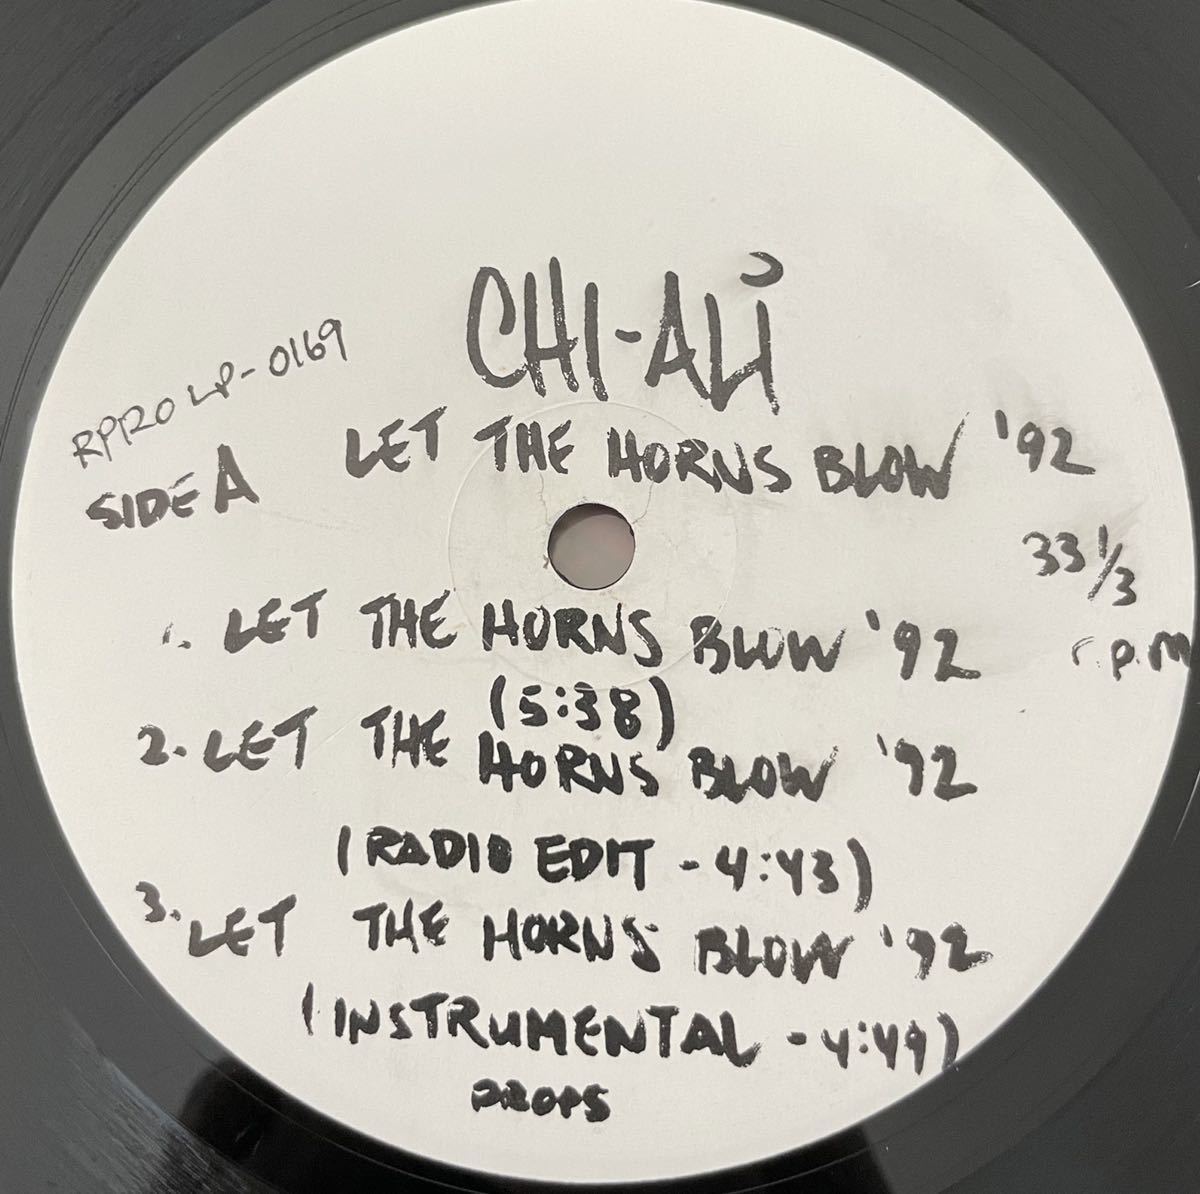 CHI-ALi
RPRO LP-0169
SIDE A
LET THE HORNS BLOW '92
33 1/3
r.p.m
1. LET THE HORNS BLOW '92
(5:38)
2. LET THE HORNS BLOW '92
(RADIO EDIT - 4:43)
3. LET THE HORNS BLOW '92
(INSTRUMENTAL - 4:49)
DROPS